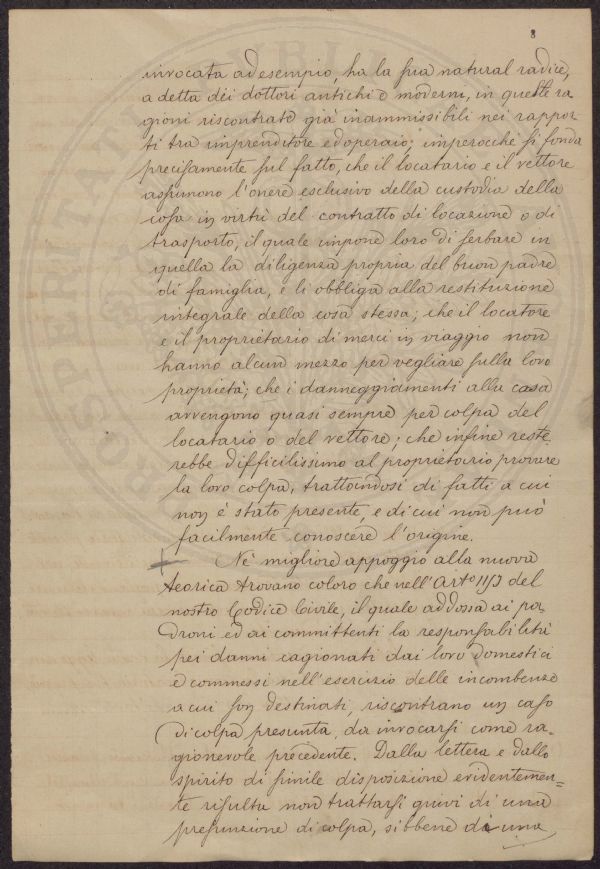 8
invocata ad esempio, ha la sua natural radice,
a detta dei dottori antichi o moderni, in quelle ra
gioni riscontrate già inammissibili nei rappor
ti tra imprenditore ed operaio; imperocchè si fonda
precisamente sul fatto, che il locatario e il vettore
assumono l'onere esclusivo della custodia della
cosa in virtù del contratto di locazione o di
trasporto, il quale impone loro di serbare in
quella la diligenza propria del buon padre
di famiglia, e li obbliga alla restituzione
integrale della cosa stessa; che il locatore
e il proprietario di merci in viaggio non
hanno alcun mezzo per vegliare sulla loro
proprietà; che i danneggiamenti alla casa
avvengono quasi sempre per colpa del
locatario o del vettore; che infine reste
rebbe difficilissimo al proprietario provare
la loro colpa, trattandosi di fatti a cui
non è stato presente, e di cui non può
facilmente conoscere l'origine.
+ Nè migliore appoggio alla nuova
teorica trovano coloro che nell'Arto 1153 del
nostro Codice Civile, il quale addossa ai pa
droni ed ai committenti la responsabilità
pei danni cagionati dai loro domestici
e commessi nell'esercizio delle incombenze
a cui son destinati, riscontrano un caso
di colpa presunta, da invocarsi come ra
gionevole precedente. Dalla lettera e dallo
spirito di simile disposizione evidentemen=
te risulta non trattarsi quivi di una
presunzione di colpa, sibbene di una
PROSPERITATI PUBLI